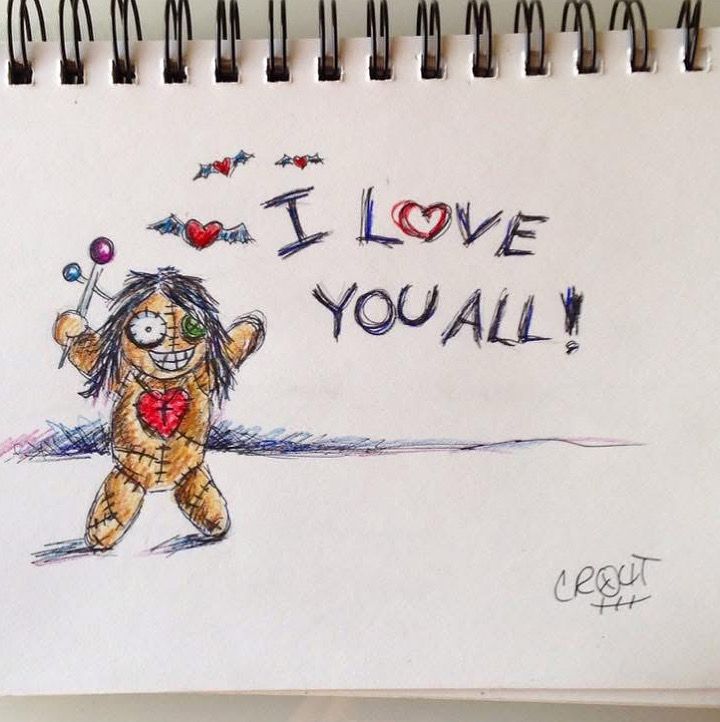 I LOVE
YOU ALL!
CROUT